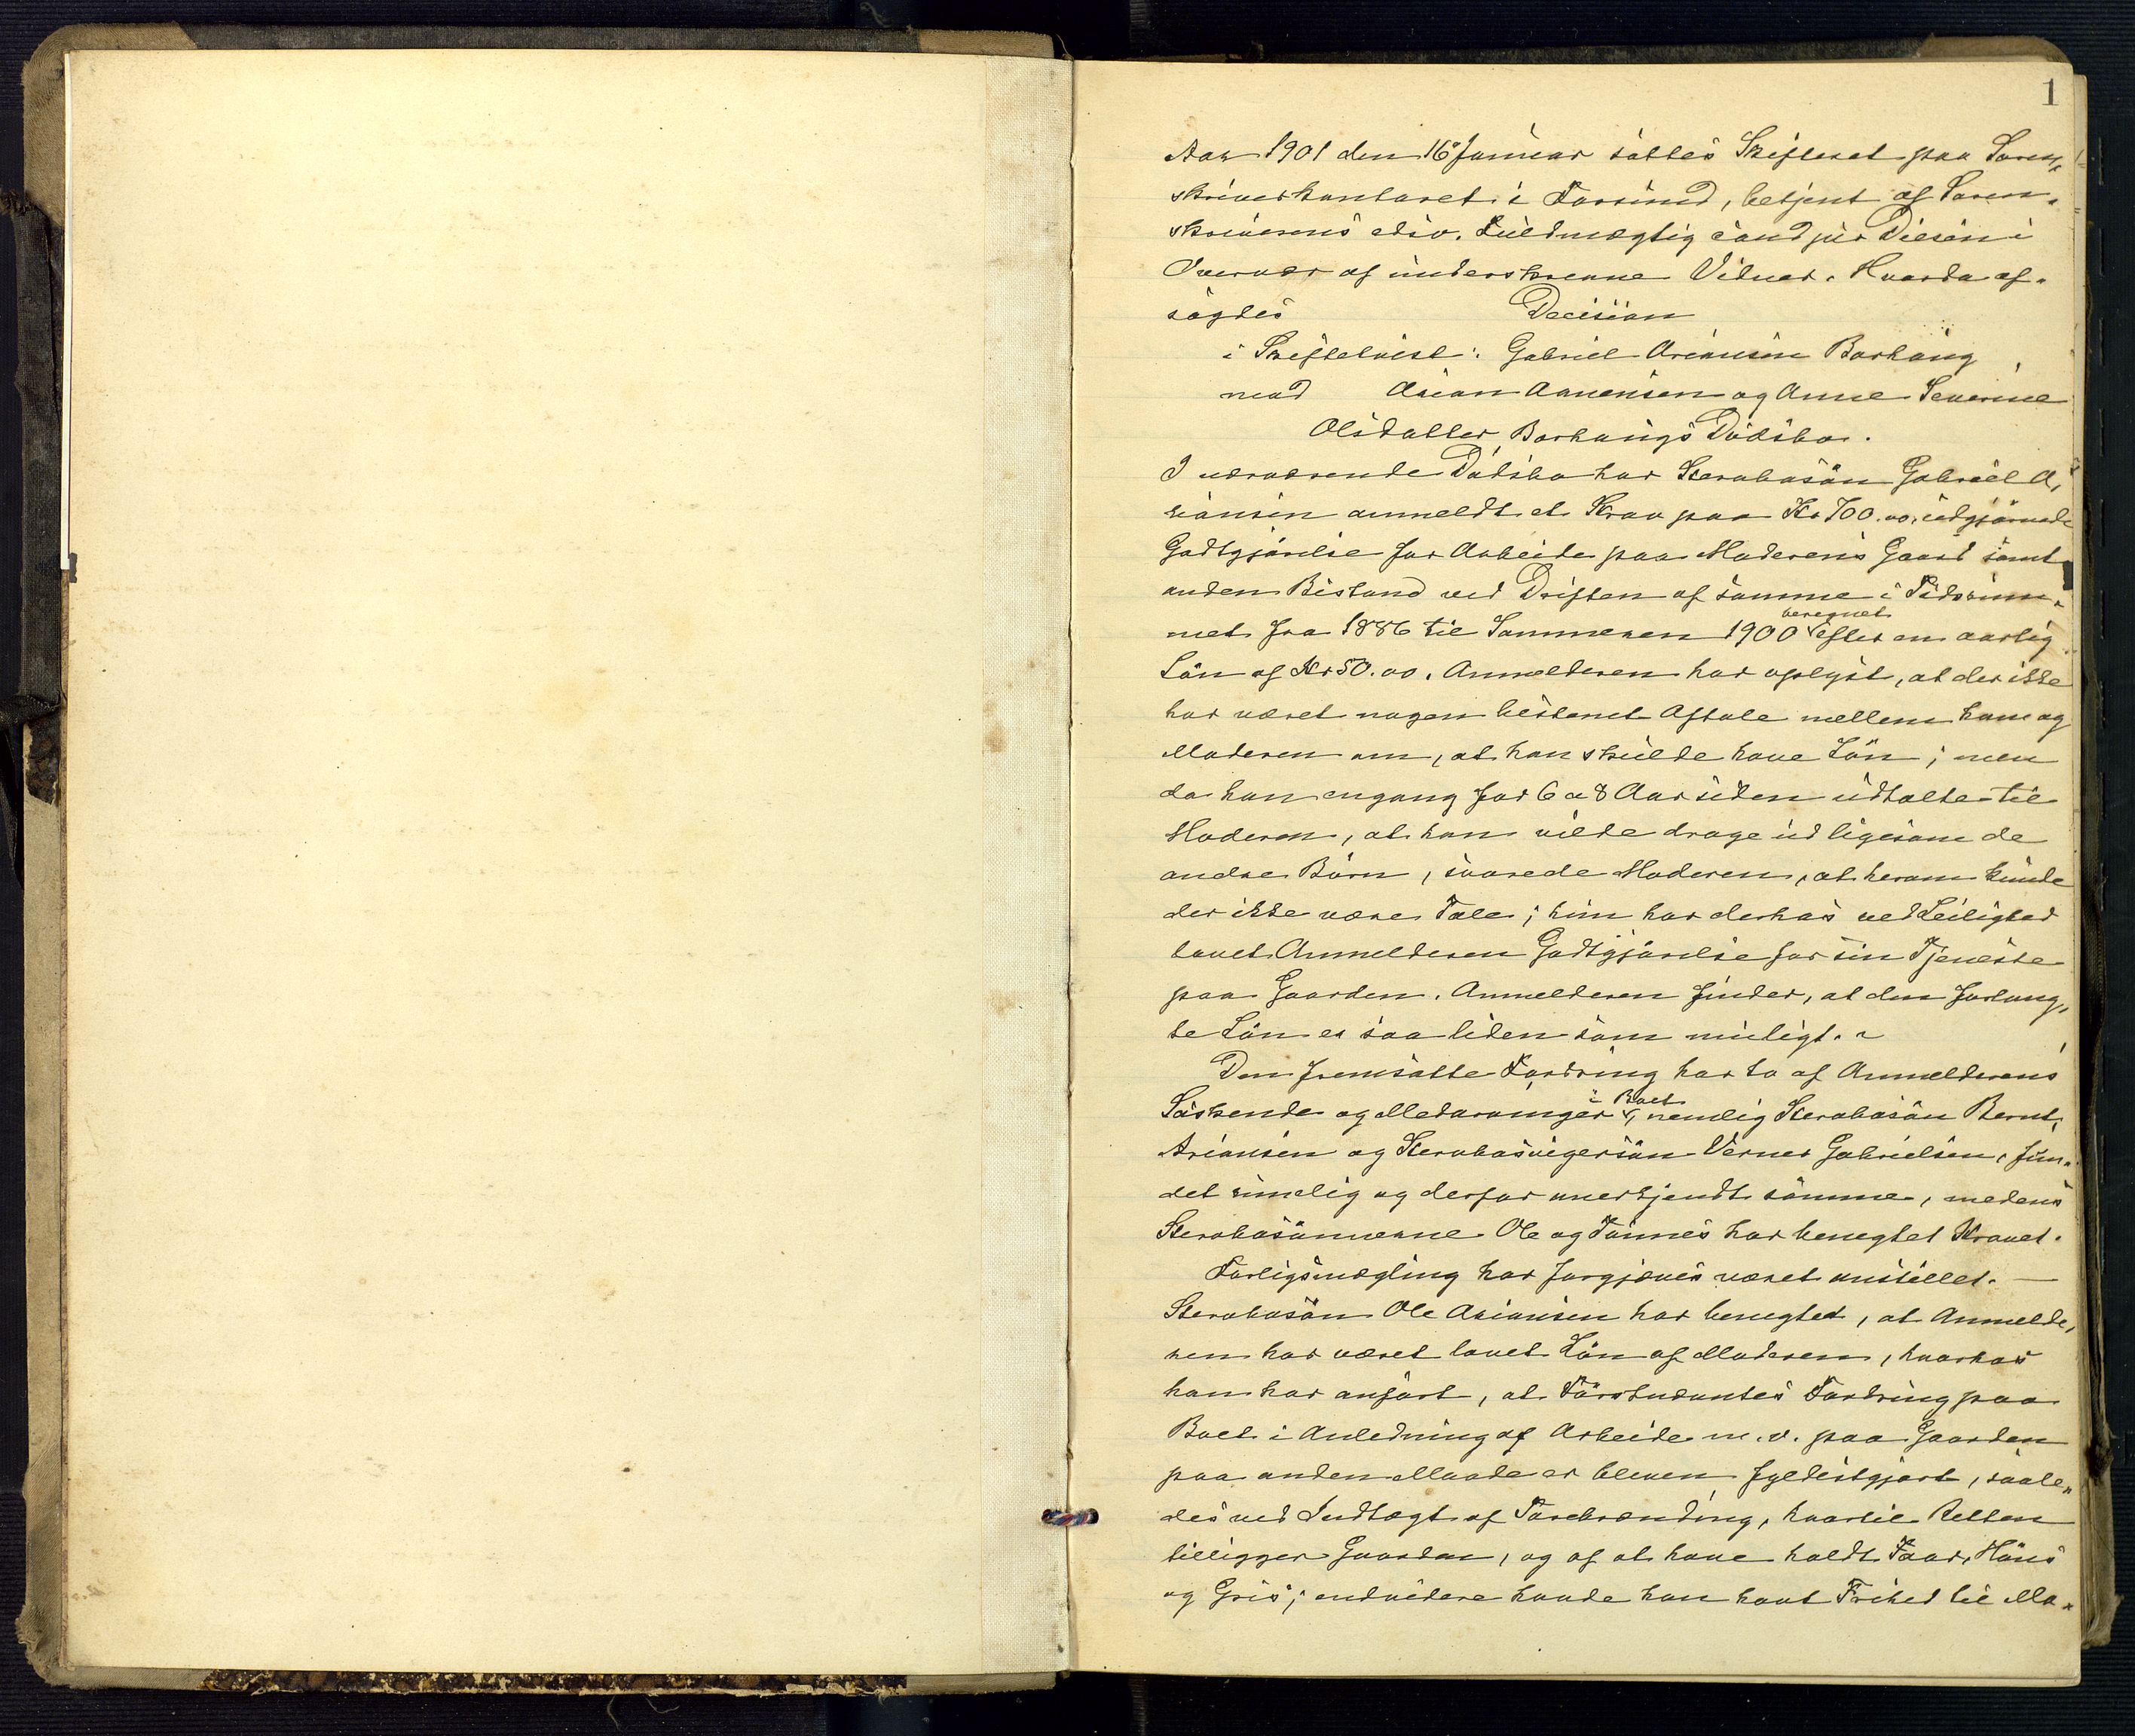 1
Aar 1901 den 16 Januar sattes Skifteret paa Soren-
skriverkontoret i Farsund, betjent af Soren-
skriverens edsv. Fuldmægtig cand jur Diesen i
Overvær af underskrevne Vidner. Hvorda af-
sagdes Decision
i Skiftetvist: Gabriel Ariansen Borhaug
mod Arian Aanensen og Anne Severine
Olsdatter Borhaugs Dødsbo.
I nærværende Dødsbo har Stervbosøn Gabriel A-
riansen anmeldt et Krav paa Kr 700.00, udgjørende
Godtgjørelse for Arbeide paa Moderens Gaard samt
anden Bistand ved Driften af samme i Tidsrum-
met fra 1886 til Sommeren 1900 beregnet efter en aarlig
Løn af Kr 50.00. Anmelderen har oplyst, at der ikke
har været nogen bestemt Aftale mellem ham og
Moderen om, at han skulde have Løn; men
da han engang for 6 a 8 Aar siden udtalte til
Moderen, at han vilde drage ud ligesom de
andre Børn, svarede Moderen, at herom kunde
der ikke være Tale; hun har derhos ved Leilighed
lovet Anmelderen Godtgjørelse for sin Tjeneste
paa Gaarden. Anmelderen finder, at den forlang-
te Løn er saa liden som muligt.
Den fremsatte Fordring har to af Anmelderens
Søskende og Medarvinger i Boet, nemlig Stervbosøn Bernt
Ariansen og Stervbosvigersøn Verner Gabrielsen, fun-
det rimelig og derfor anerkjendt samme, medens
Stervbosønnerne Ole og Tønnes har benegtet Kravet.
Forligsmægling har forgjæves været anstillet. —
Stervbosøn Ole Ariansen har benegtet, at Anmelde-
ren har været lovet Løn af Moderen, hvorhos
han har anført, at Førstnævntes Fordring paa
Boet i Anledning af Arbeide m. v. paa Gaarden
paa anden Maade er bleven fyldestgjort, saale-
des ved Indtægt af Tarebrænding, hvortil Retten
tilligger Gaarden, og af at have holdt Faar, Høns
og Gris; endvidere havde han havt Frihed til Ma-